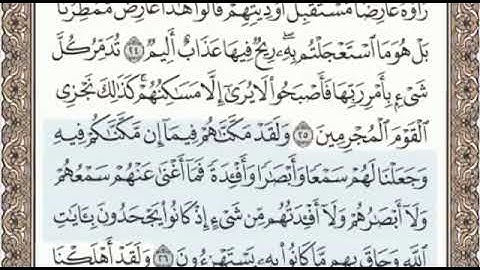 رَأَوْهُ عَارِضًا مُّسْتَقْبِلَ أَوْدِيَتِهِمْ قَالُوا۟ هَٰذَا عَارِضٌ مُّمْطِرُنَا
بَلْ هُوَ مَا ٱسْتَعْجَلْتُم بِهِۦ ۖ رِيحٌ فِيهَا عَذَابٌ أَلِيمٌ ٢٤ تُدَمِّرُ كُلَّ
شَىْءٍۭ بِأَمْرِ رَبِّهَا فَأَصْبَحُوا۟ لَا يُرَىٰٓ إِلَّا مَسَٰكِنُهُمْ ۚ كَذَٰلِكَ نَجْزِى
ٱلْقَوْمَ ٱلْمُجْرِمِينَ ٢٥ وَلَقَدْ مَكَّنَّٰهُمْ فِيمَآ إِن مَّكَّنَّٰكُمْ فِيهِ
وَجَعَلْنَا لَهُمْ سَمْعًا وَأَبْصَٰرًا وَأَفْـِٔدَةً فَمَآ أَغْنَىٰ عَنْهُمْ سَمْعُهُمْ
وَلَآ أَبْصَٰرُهُمْ وَلَآ أَفْـِٔدَتُهُم مِّن شَىْءٍ إِذْ كَانُوا۟ يَجْحَدُونَ بِـَٔايَٰتِ
ٱللَّهِ وَحَاقَ بِهِم مَّا كَانُوا۟ بِهِۦ يَسْتَهْزِءُونَ ٢٦ وَلَقَدْ أَهْلَكْنَا